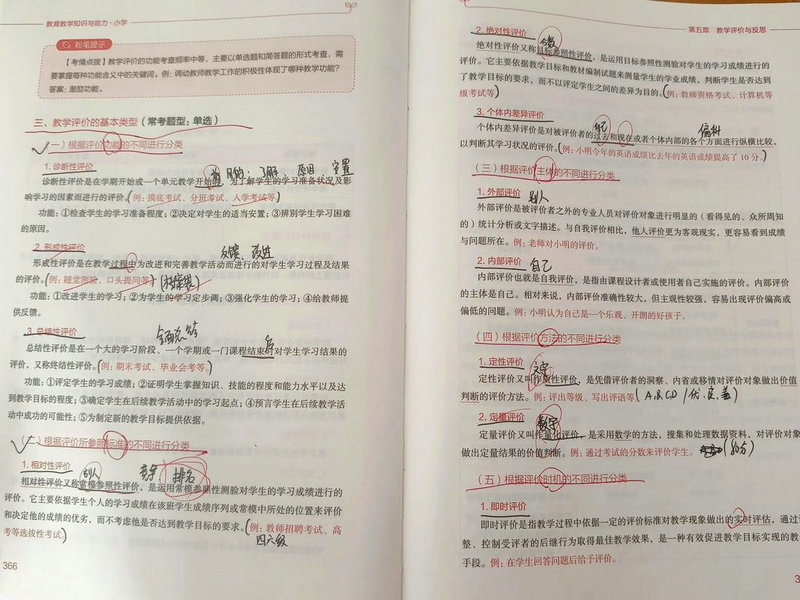 教育教学知识与能力·小学
粉笔提示
【考情点拨】教学评价的功能考查频率中等，主要以单选题和简答题的形式考查，需
要掌握每种功能含义中的关键词。例：调动教师教学工作的积极性体现了哪种教学功能？
答案：激励功能。
三、教学评价的基本类型（常考题型：单选）
（一）根据评价功能的不同进行分类
前 目的：了解 原因 安置
1. 诊断性评价
诊断性评价是在学期开始或一个单元教学开始时，为了解学生的学习准备状况及影
响学习的因素而进行的评价（例：摸底考试、分班考试、入学考试等）
功能：①检查学生的学习准备程度；②决定对学生的适当安置；③辨别学生学习困难
的原因。
2. 形成性评价
反馈、改进
形成性评价是在教学过程中为改进和完善教学活动而进行的对学生学习过程及结果
的评价。（例：随堂测验、口头提问等）
功能：①改进学生的学习；②为学生的学习定步调；③强化学生的学习；④给教师提
供反馈。
3. 总结性评价
后
总结性评价是在一个大的学习阶段、一个学期或一门课程结束时对学生学习结果的
评价，又称终结性评价。（例：期末考试、毕业会考等。）
功能：①评定学生的学习成绩；②证明学生掌握知识、技能的程度和能力水平以及达
到教学目标的程度；③确定学生在后续教学活动中的学习起点；④预言学生在后续教学活
动中成功的可能性；⑤为制定新的教学目标提供依据。
（二）根据评价所参照标准的不同进行分类
1. 相对性评价
别人 排名
相对性评价又称常模参照性评价，是运用常模参照性测验对学生的学习成绩进行的
评价。它主要依据学生个人的学习成绩在该班学生成绩序列或常模中所处的位置来评价
和决定他的成绩的优劣，而不考虑他是否达到教学目标的要求。（例：教师招聘考试、高
考等选拔性考试）
四六级
366
第五章 教学评价与反思
2. 绝对性评价
绝对性评价又称目标参照性评价，是运用目标参照性测验对学生的学习成绩进行的
评价。它主要依据教学目标和教材编制试题来测量学生的学业成绩，判断学生是否达到
了教学目标的要求，而不以评定学生之间的差异为目的。（例：教师资格考试、计算机等
级考试等）
3. 个体内差异评价
自己 偏科
个体内差异评价是对被评价者的过去和现在或者个体内部的各个方面进行纵横比较，
以判断其学习状况的评价。（例：小明今年的英语成绩比去年的英语成绩提高了 10 分）
（三）根据评价主体的不同进行分类
1. 外部评价
别人
外部评价是被评价者之外的专业人员对评价对象进行明显的（看得见的、众所周知
的）统计分析或文字描述。与自我评价相比，他人评价更为客观现实，更容易看到成绩
与问题所在。例：老师对小明的评价。
2. 内部评价 自己
内部评价也就是自我评价，是指由课程设计者或使用者自己实施的评价。内部评价
的主体是自己。相对来说，内部评价准确性较大，但主观性较强，容易出现评价偏高或
偏低的问题。例：小明认为自己是一个乐观、开朗的好孩子。
（四）根据评价方法的不同进行分类
1. 定性评价
文字
定性评价又叫作质性评价，是凭借评价者的洞察、内省或移情对评价对象做出价值
判断的评价方法。例：评出等级、写出评语等（A.B.CD / 优.良.差）
2. 定量评价
数字
定量评价又叫作量化评价，是采用数学的方法，搜集和处理数据资料，对评价对象
做出定量结果的价值判断。例：通过考试的分数来评价学生。（80分）
（五）根据评价时机的不同进行分类
1. 即时评价
即时评价是指教学过程中依据一定的评价标准对教学现象做出的实时评估，通过
整、控制受评者的后继行为取得最佳教学效果，是一种有效促进教学目标实现的教
手段。例：在学生回答问题后给予评价。
3